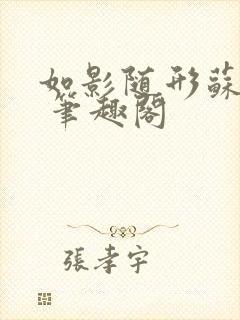 如影随形蘇
筆趣阁
張孝宇